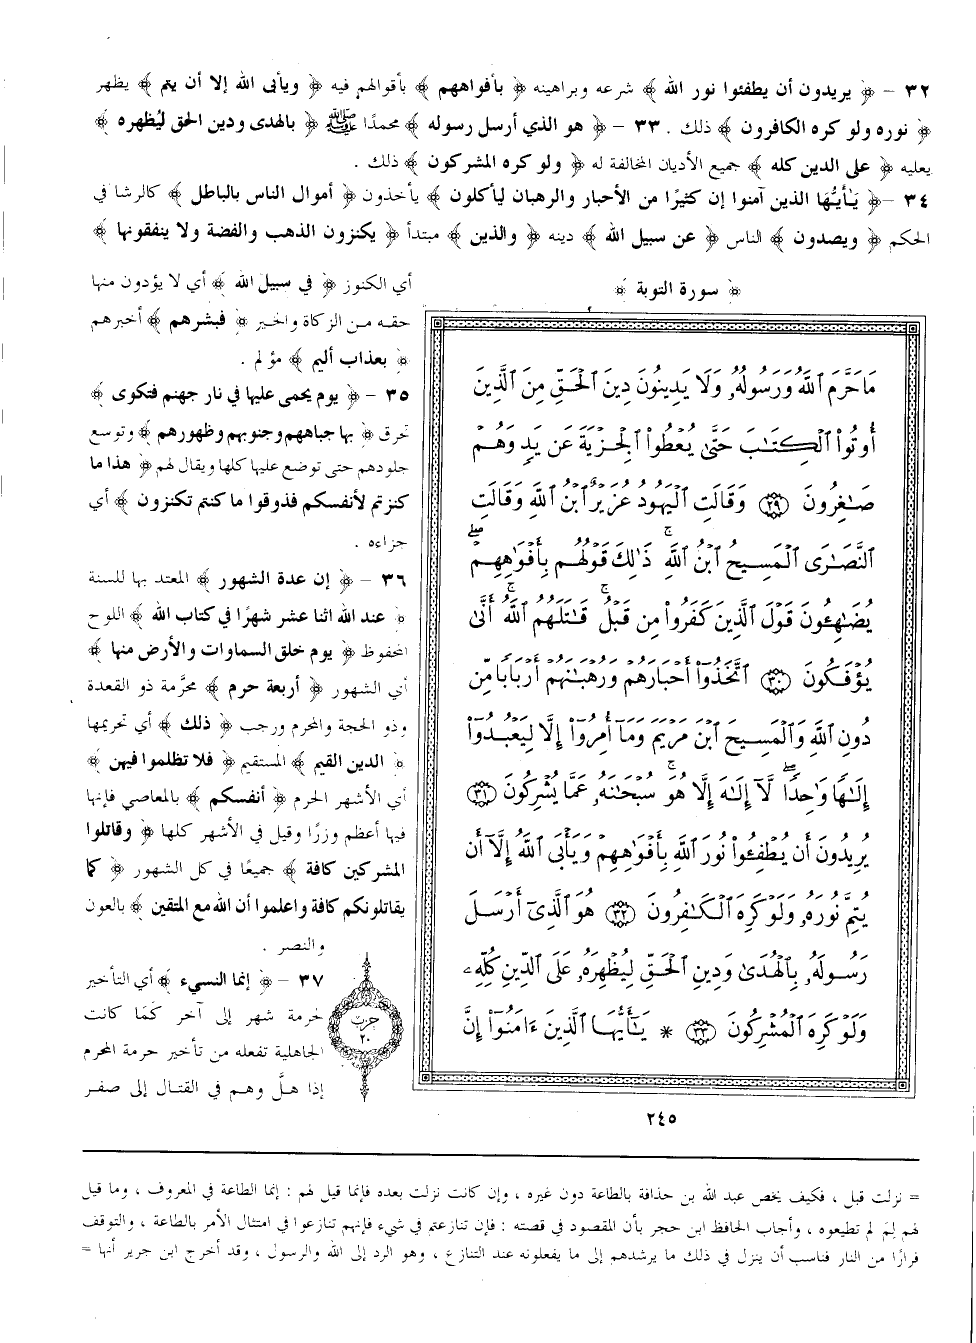 ٣٢ - ﴿ يريدون أن يطفئوا نور الله ﴾ شرعه وبراهينه ﴿ بأفواههم ﴾ بأقوالهم فيه ﴿ ويأبى الله إلا أن يتم ﴾ يظهر
﴿ نوره ولو كره الكافرون ﴾ ذلك . ٣٣ - ﴿ هو الذي أرسل رسوله ﴾ محمدًا ﷺ ﴿ بالهدى ودين الحق ليُظهره ﴾
يعليه ﴿ على الدين كله ﴾ جميع الأديان المخالفة له ﴿ ولو كره المشركون ﴾ ذلك .
٣٤ - ﴿ يَـٰأيُّهَا الذين آمنوا إن كثيرًا من الأحبار والرهبان ليأكلون ﴾ يأخذون ﴿ أموال الناس بالباطل ﴾ كالرشا في
الحكم ﴿ ويصدون ﴾ الناس ﴿ عن سبيل الله ﴾ دينه ﴿ والذين ﴾ مبتدأ ﴿ يكنزون الذهب والفضة ولا ينفقونها ﴾
أي الكنوز ﴿ في سبيل الله ﴾ أي لا يؤدون منها
حقه من الزكاة والخير ﴿ فبشرهم ﴾ أخبرهم
﴿ بعذاب أليم ﴾ مؤلم .
٣٥ - ﴿ يوم يحمى عليها في نار جهنم فتكوى ﴾
تحرق ﴿ بها جباههم وجنوبهم وظهورهم ﴾ وتوسع
جلودهم حتى توضع عليها كلها ويقال لهم ﴿ هذا ما
كنزتم لأنفسكم فذوقوا ما كنتم تكنزون ﴾ أي
جزاءه .
٣٦ - ﴿ إن عدة الشهور ﴾ المعتد بها للسنة
﴿ عند الله اثنا عشر شهرًا في كتاب الله ﴾ اللوح
المحفوظ ﴿ يوم خلق السماوات والأرض منها ﴾
أي الشهور ﴿ أربعة حرم ﴾ محرّمة ذو القعدة
وذو الحجة والمحرم ورجب ﴿ ذلك ﴾ أي تحريمها
﴿ الدين القيم ﴾ المستقيم ﴿ فلا تظلموا فيهن ﴾
أي الأشهر الحرم ﴿ أنفسكم ﴾ بالمعاصي فإنها
فيها أعظم وزرًا وقيل في الأشهر كلها ﴿ وقاتلوا
المشركين كافة ﴾ جميعًا في كل الشهور ﴿ كما
يقاتلونكم كافة واعلموا أن الله مع المتقين ﴾ بالعون
والنصر .
٣٧ - ﴿ إنما النسيء ﴾ أي التأخير
لحرمة شهر إلى آخر كَمَا كانت
الجاهلية تفعله من تأخير حرمة المحرم
إذا هلَّ وهم في القتال إلى صفر
﴿ سورة التوبة ﴾
مَا حَرَّمَ ٱللَّهُ وَرَسُولُهُۥ وَلَا يَدِينُونَ دِينَ ٱلْحَقِّ مِنَ ٱلَّذِينَ
أُوتُوا۟ ٱلْكِتَـٰبَ حَتَّىٰ يُعْطُوا۟ ٱلْجِزْيَةَ عَن يَدٍ وَهُمْ
صَـٰغِرُونَ ٢٩ وَقَالَتِ ٱلْيَهُودُ عُزَيْرٌ ٱبْنُ ٱللَّهِ وَقَالَتِ
ٱلنَّصَـٰرَى ٱلْمَسِيحُ ٱبْنُ ٱللَّهِ ۖ ذَٰلِكَ قَوْلُهُم بِأَفْوَٰهِهِمْ ۖ
يُضَـٰهِـُٔونَ قَوْلَ ٱلَّذِينَ كَفَرُوا۟ مِن قَبْلُ ۚ قَـٰتَلَهُمُ ٱللَّهُ ۚ أَنَّىٰ
يُؤْفَكُونَ ٣٠ ٱتَّخَذُوٓا۟ أَحْبَارَهُمْ وَرُهْبَـٰنَهُمْ أَرْبَابًا مِّن
دُونِ ٱللَّهِ وَٱلْمَسِيحَ ٱبْنَ مَرْيَمَ وَمَآ أُمِرُوٓا۟ إِلَّا لِيَعْبُدُوٓا۟
إِلَـٰهًا وَٰحِدًا ۖ لَّآ إِلَـٰهَ إِلَّا هُوَ ۚ سُبْحَـٰنَهُۥ عَمَّا يُشْرِكُونَ ٣١
يُرِيدُونَ أَن يُطْفِـُٔوا۟ نُورَ ٱللَّهِ بِأَفْوَٰهِهِمْ وَيَأْبَى ٱللَّهُ إِلَّآ أَن
يُتِمَّ نُورَهُۥ وَلَوْ كَرِهَ ٱلْكَـٰفِرُونَ ٣٢ هُوَ ٱلَّذِىٓ أَرْسَلَ
رَسُولَهُۥ بِٱلْهُدَىٰ وَدِينِ ٱلْحَقِّ لِيُظْهِرَهُۥ عَلَى ٱلدِّينِ كُلِّهِۦ
وَلَوْ كَرِهَ ٱلْمُشْرِكُونَ ٣٣ * يَـٰٓأَيُّهَا ٱلَّذِينَ ءَامَنُوٓا۟ إِنَّ
حزب
٢٠
٢٤٥
= نزلت قبل ، فكيف يخص عبد الله بن حذافة بالطاعة دون غيره ، وإن كانت نزلت بعده فإنما قيل لهم : إنما الطاعة في المعروف ، وما قيل
لهم لِمَ لم تطيعوه ، وأجاب الحافظ ابن حجر بأن المقصود في قصته : فإن تنازعتم في شيء فإنهم تنازعوا في امتثال الأمر بالطاعة ، والتوقف
فرارًا من النار فناسب أن ينزل في ذلك ما يرشدهم إلى ما يفعلونه عند التنازع ، وهو الرد إلى الله والرسول ، وقد أخرج ابن جرير أنها =